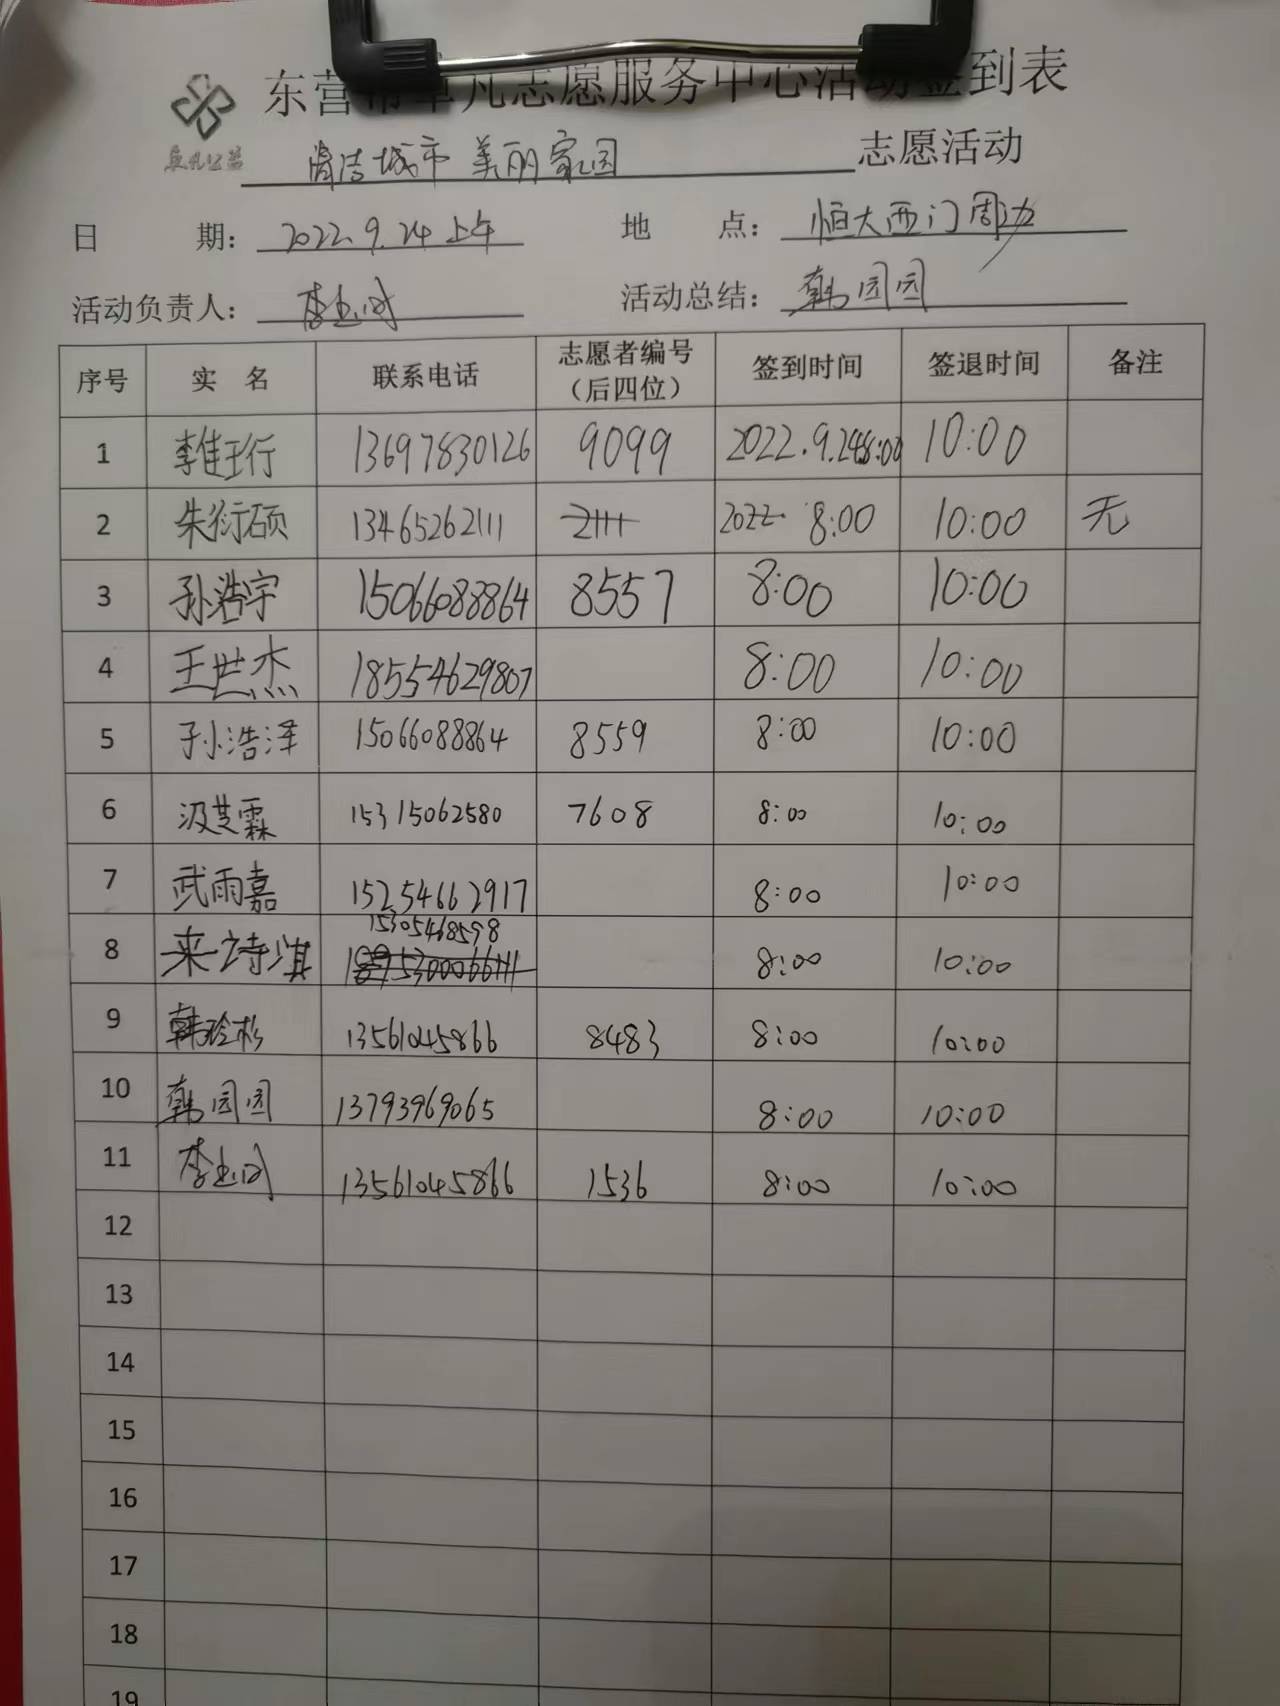 东营市卓凡志愿服务中心活动签到表
卓凡公益
清洁城市 美丽家园 志愿活动
日 期: 2022.9.24上午 地 点: 恒大西门周边
活动负责人: 活动总结: 韩园园
序号 实 名 联系电话 志愿者编号(后四位) 签到时间 签退时间 备注
1 李佳珩 13697830126 9099 2022.9.24 8:00 10:00
2 朱衍硕 13465262111 2111 2022. 8:00 10:00 无
3 孙浩宇 15066088864 8557 8:00 10:00
4 王世杰 18554629807 8:00 10:00
5 孙浩泽 15066088864 8559 8:00 10:00
6 汲芝霖 15315062580 7608 8:00 10:00
7 武雨嘉 15254662917 8:00 10:00
8 来诗淇 15305468598 8:00 10:00
9 韩玲杉 13561045866 8483 8:00 10:00
10 韩园园 13793969065 8:00 10:00
11 13561045866 1536 8:00 10:00
12
13
14
15
16
17
18
19